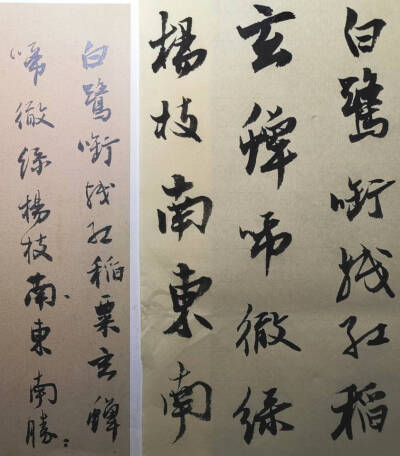 白鷺啣殘紅稻粟玄蟬
啼徹綠楊枝南東南勝
白鷺啣殘紅稻
玄蟬啼徹綠
楊枝南東南